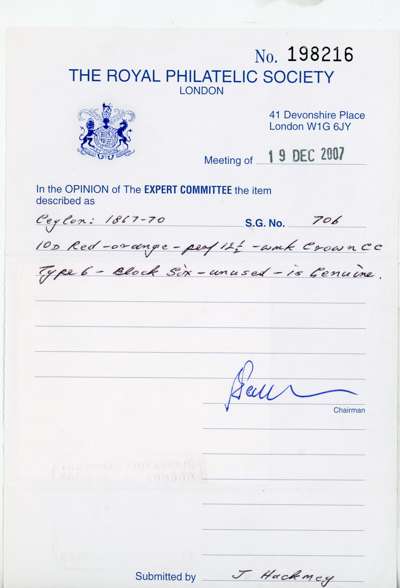 No. 198216
THE ROYAL PHILATELIC SOCIETY
LONDON
41 Devonshire Place
London W1G 6JY
Meeting of 19 DEC 2007
In the OPINION of The EXPERT COMMITTEE the item
described as
Ceylon: 1867-70 S.G. No. 70b
10D Red-orange - perf 12½ - wmk Crown CC
Type 6 - Block Six - unused - is Genuine.
Chairman
Submitted by J Hackmey